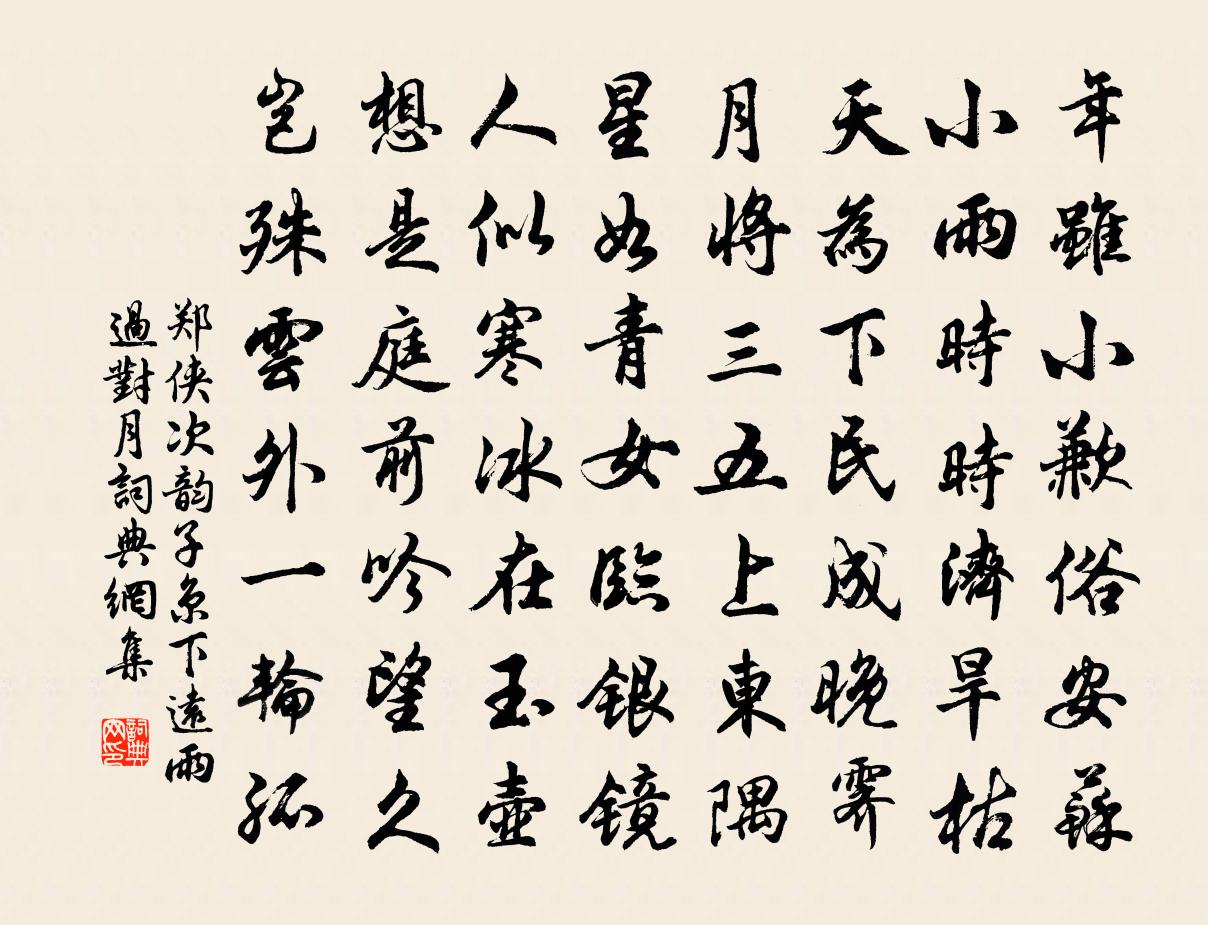 年雖小歉俗安蘇
小雨時時濟旱枯
天為下民成晚霽
月將三五上東隅
星如青女臨銀镜
人似寒冰在玉壺
想是庭前吟望久
豈殊雲外一輪孤
郑侠次韵子京下遠雨
過對月詞典網集
詞典
网印